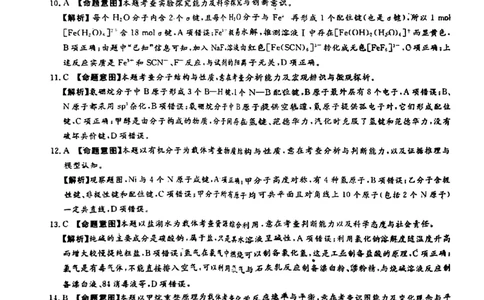 10. A 【命题意图】本题考查实验探究能力及科学探究与创新意识。
【解析】每个 H₂O 分子内含 2 个 σ 键,且每个 H₂O 分子与 Fe 再形成 1 个配位键(也是 σ 键),所以 1 mol
[Fe(H₂O)₆]³⁺ 含 18 mol σ 键,A 项错误;Fe 极易水解,推测溶液 I 中存在 [Fe(OH)₂(H₂O)₄]⁺ 而显黄色,
B 项正确;由题中“已知”信息可知,加入 NaF,溶液由红色[Fe(SCN)₆]³⁻转化成无色[FeF₆]³⁻,C 项正确;上
述反应实质是 Fe³⁺ 和 SCN⁻、F⁻ 反应,与试剂的阳离子无关,D 项正确。
11. C 【命题意图】本题考查分子结构与性质,意在考查分析能力及宏观辨识与微观探析。
【解析】氨硼烷分子中 B 原子形成 3 个 B—H 键、1 个 N—B 配位键,B 原子最外层有 8 个电子,A 项错误;B、
N 原子都采用 sp³ 杂化,B 项错误;氨硼烷分子中 B 原子提供空轨道,氮原子提供孤电子对,它们形成配位
键,C 项正确;甲醇是由分子构成的物质,分子间存在氢键、范德华力,汽化时克服了氢键和范德华力,没有
破坏共价键,D 项错误。
12. A 【命题意图】本题以有机分子为载体考查物质结构与性质,意在考查分析与判断能力,以及证据推理与
模型认知。
【解析】观察题图,Ni 与 4 个 N 原子成键,A 项正确;甲分子高度对称,有 4 种氢原子,B 项错误;乙分子含极
性键、非极性键和配位键,C 项错误;甲分子所有原子可共平面且对角线上 10 个原子(包括 2 个 N 原子)
一定共直线,D 项错误。
13. C 【命题意图】本题以盐湖水为载体考查资源综合利用,意在考查判断能力以及科学态度与社会责任。
【解析】纯碱的主要成分是碳酸钠,属于盐,只是其水溶液呈碱性,A 项错误;利用氯化钠溶解度随温度升高
而增大较慢提纯粗盐,B 项错误;氢气在氯气中燃烧可以制备氯化氢,这是工业制备盐酸的原理,C 项正确;
氯气是有毒气体,不能直接排入空气,可以利用氯气与石灰乳反应制备漂白粉、漂粉精,与烧碱溶液反应制
备漂白液、84 消毒液等,D 项错误。
14. B 【命题意图】本题以甲烷重整原理为载体考查化学反应速率与平衡,意在考查识图能力及变化观念与平